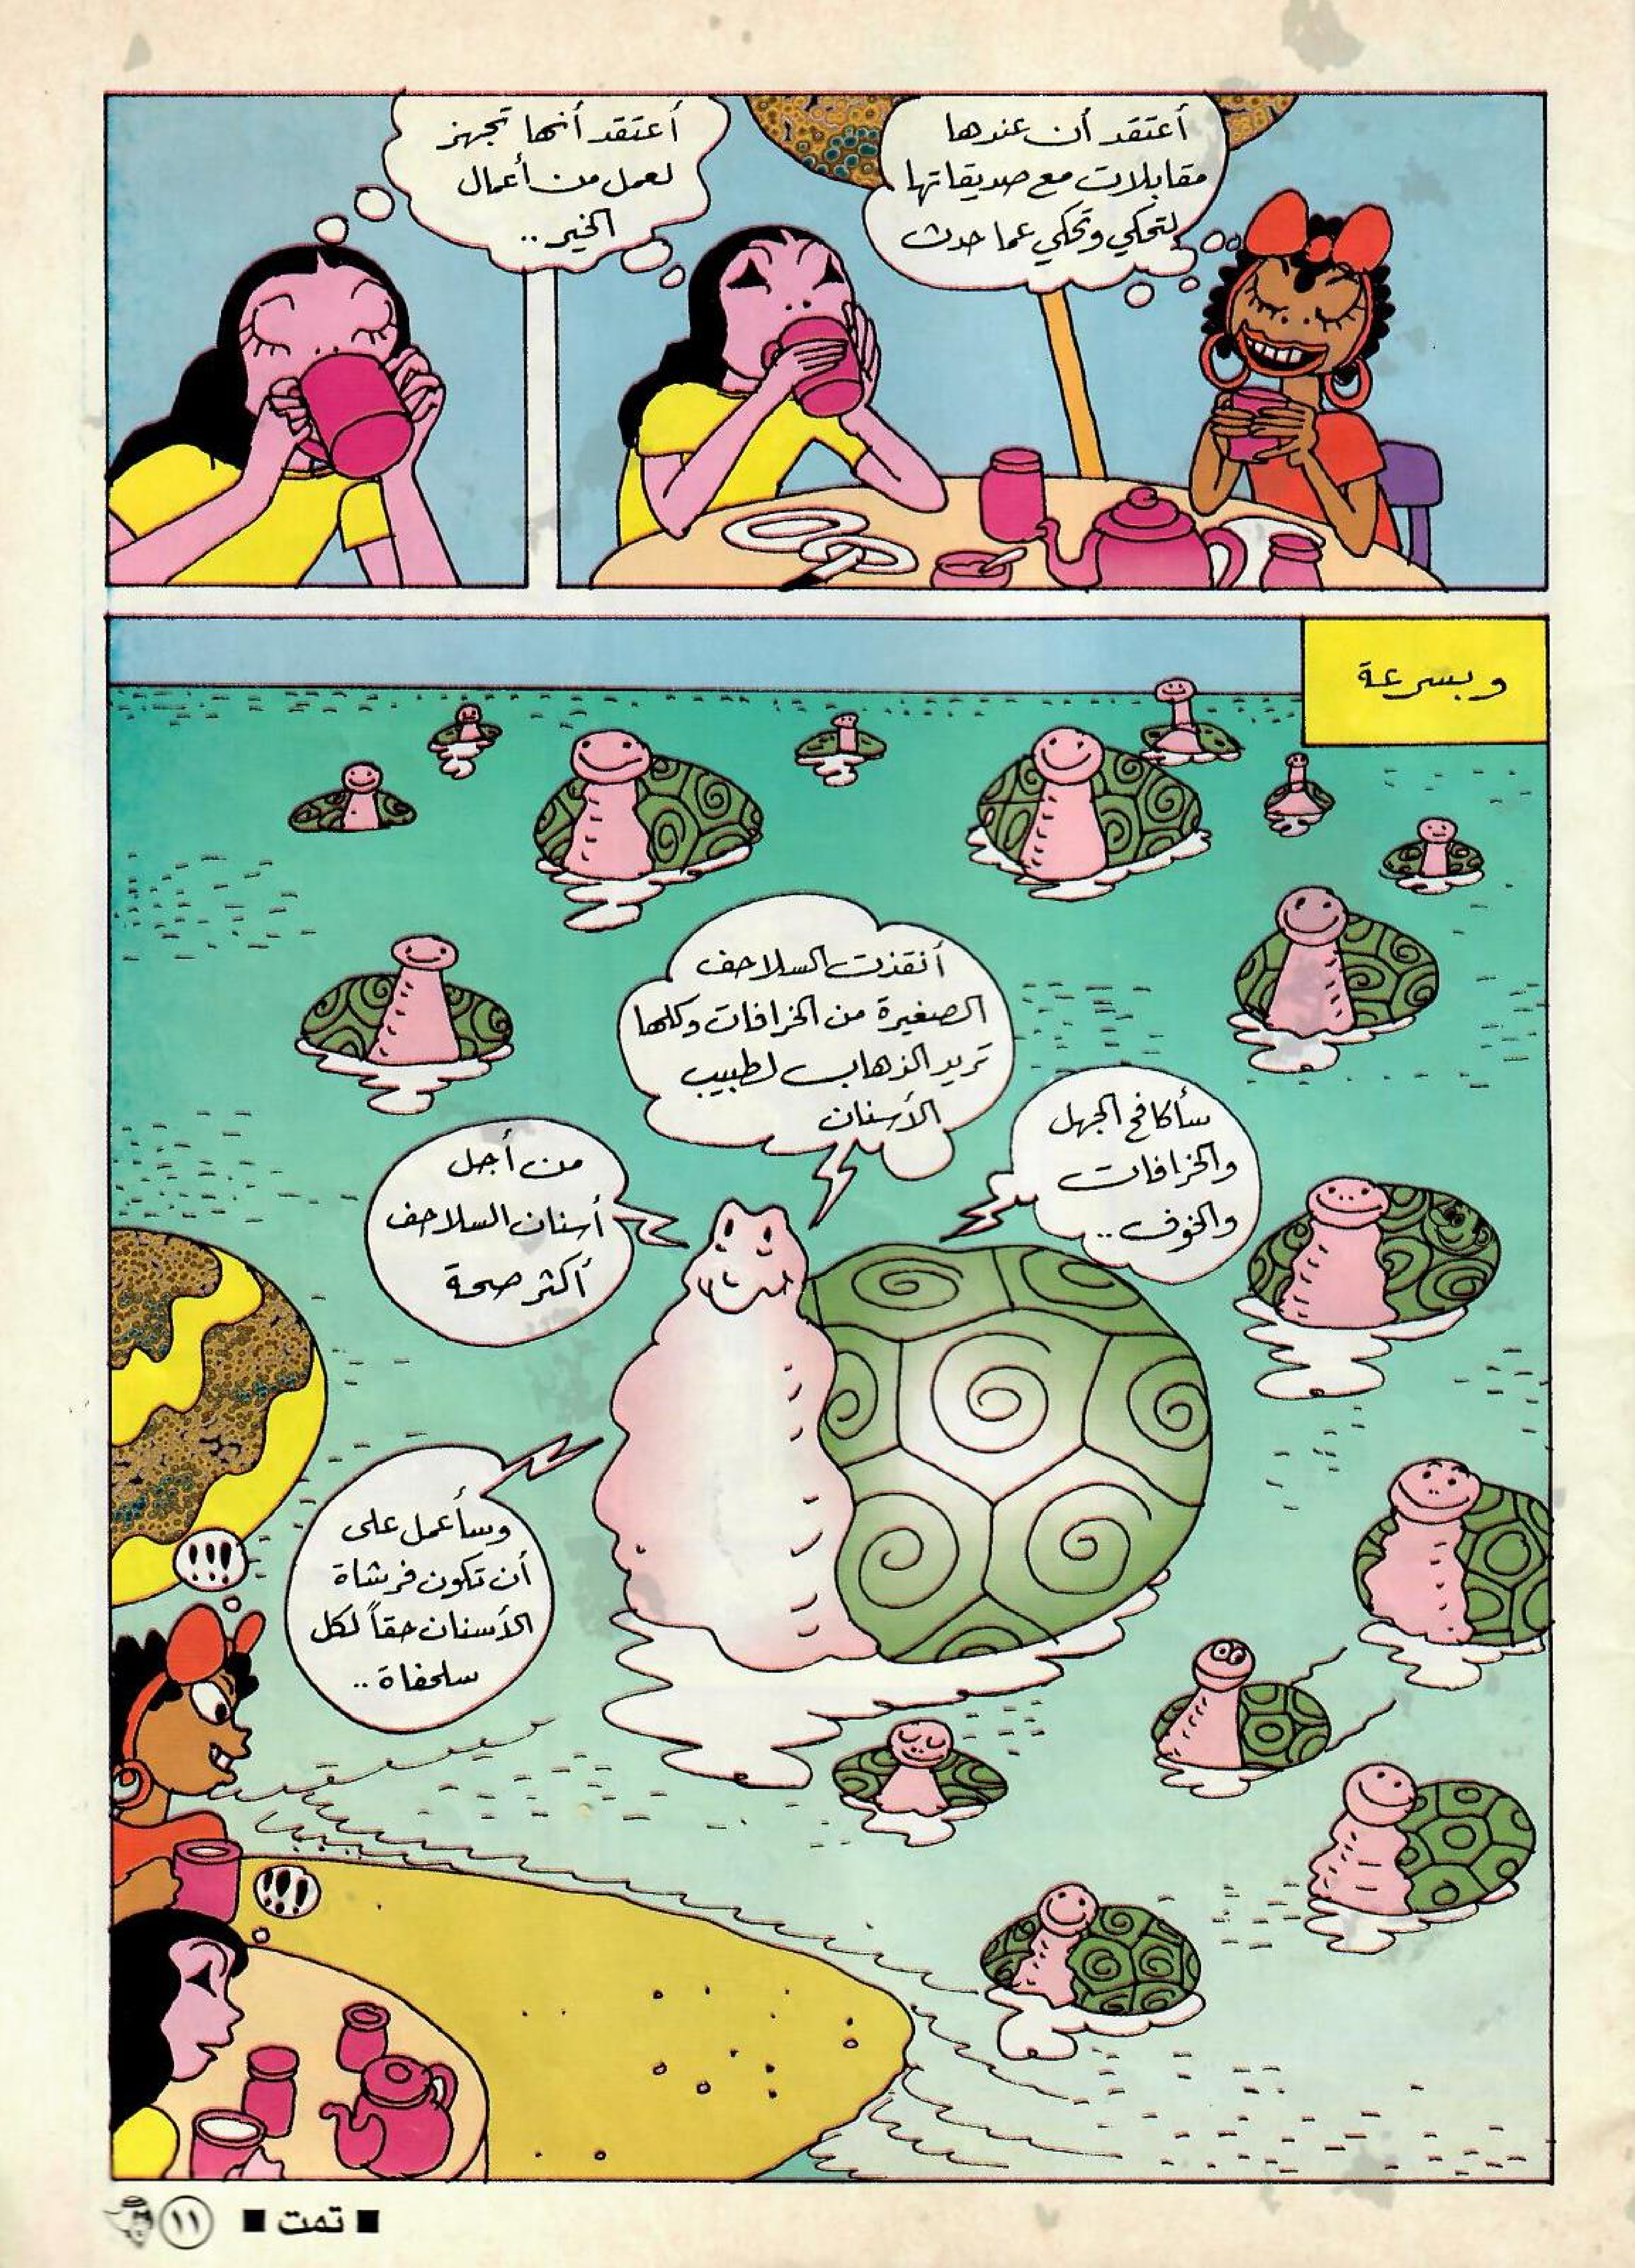 أعتقد أن عندها
مقابلات مع صديقاتها
لتحكي وتحكي عما حدث
أعتقد أنها تجهز
لعمل من أعمال
الخير..
وبسرعة
أنقذت السلاحف
الصغيرة من الخرافات وكلها
تريد الذهاب لطبيب
الأسنان
سأكافح الجهل
والخرافات
والخوف..
من أجل
أسنان السلاحف
أكثر صحة
وسأعمل على
أن تكون فرشاة
الأسنان حقاً لكل
سلحفاة..
!!!
!!!
■ تمت ■ ١١